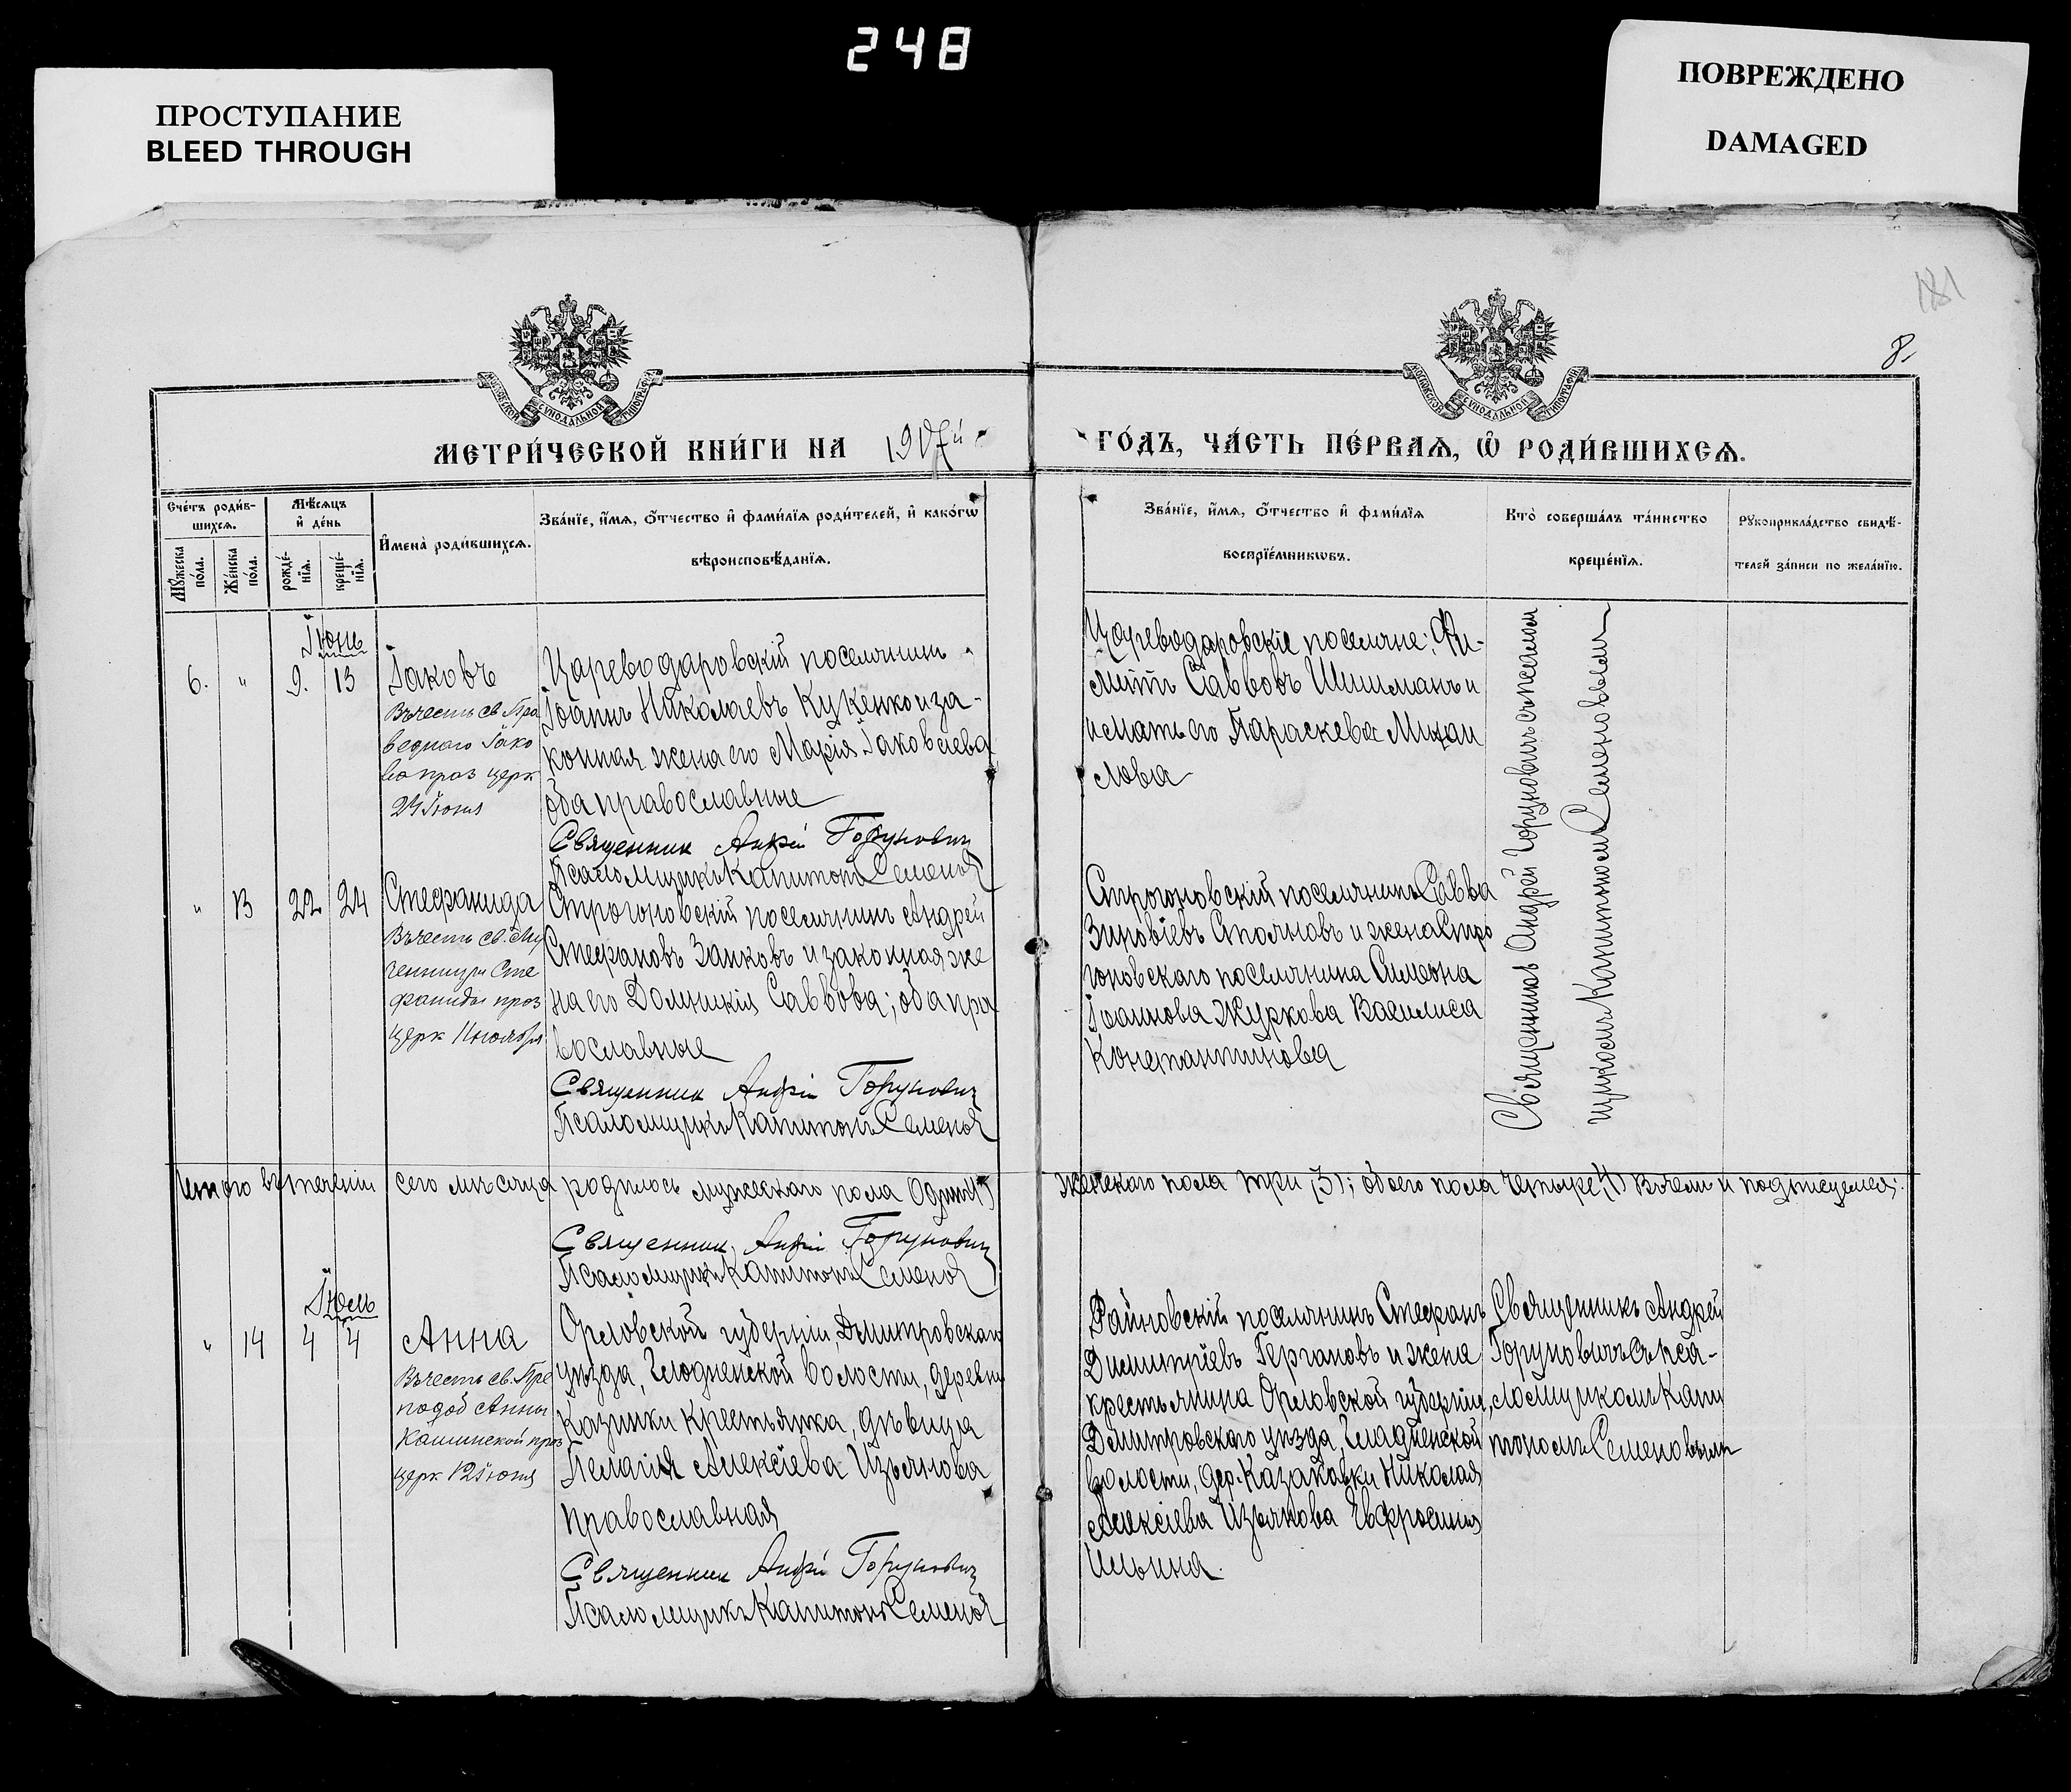 248
ПРОСТУПАНИЕ
BLEED THROUGH
ПОВРЕЖДЕНО
DAMAGED
181
8.
МОСКОВСКОЙ СѴНОДАЛЬНОЙ ТИПОГРАФІИ
МОСКОВСКОЙ СѴНОДАЛЬНОЙ ТИПОГРАФІИ
МЕТРИ́ЧЕСКОЙ КНИ́ГИ НА 1907й
ГО́ДЪ, ЧА́СТЬ ПЕ́РВАѦ, Ѡ҆ РОДИ́ВШИХСѦ.
Сче́тъ роди́в-
шихсѧ.
Мꙋ́жеска
по́ла.
Же́нска
по́ла.
Мѣ́сѧцъ
и҆ де́нь
рожде́-
нїѧ.
креще́-
нїѧ.
И҆мена̀ роди́вшихсѧ.
Зва́нїе, и҆́мѧ, ѻ҆́тчество и҆ фами́лїѧ роди́телей, и҆ како́гѡ
вѣроисповѣ́данїѧ.
Зва́нїе, и҆́мѧ, ѻ҆́тчество и҆ фами́лїѧ
воспрїе́мникѡвъ.
Кто̀ соверша́лъ та́инство
креще́нїѧ.
Рꙋкоприкла́дство свидѣ́-
телей за́писи по жела́нїю.
Іюнь
6. " 9. 13
Іаковъ
Въ честь св. Пра
веднаго Іако
ва праз церк
Іюня
Цареводаровскій поселянинъ
Іоаннъ Николаевъ Кукенко и за-
конная жена его Марія Іаковлева
оба православные
Священник Андрей Горунович
Псаломщикъ Капитонъ Семенов
Цареводаровскіе поселяне:
Савовъ Шишманъ и
и мать его Параскева Михаи
лова
Священникъ Андрей Горуновичъ съ псалом
щикомъ Капитономъ Семеновымъ
" 13 22 24
Стефанида
Въ честь св. Му
ченицы Сте
фаниды праз
церк 11 ноября
Строгоновскій поселянинъ Андрей
Стефановъ Занковъ и законная же
на его Домникія Саввова; оба пра
вославные
Священник Андрей Горунович
Псаломщикъ Капитонъ Семенов
Строгоновскій поселянинъ Савва
Зиновіевъ Стояновъ и жена Стро
гоновскаго поселянина Симеона
Іоаннова Журкова Василиса
Константинова
Итого въ теченіи сего мѣсяца родилось мужескаго пола Одинъ (1)
женскаго пола три (3); обоего пола четыре (4) Въ чемъ и подписуемся.
Священник Андрей Горунович
Псаломщикъ Капитонъ Семенов
Іюль
" 14 4 4
Анна
Въ честь св. Пре
подоб Анны
Кашинской праз
церк 12 Іюня
Орловской губерніи, Дмитровскаго
уѣзда, Глодненской волости, деревни
Казинки крестьянка, дѣвица
Пелагія Алексіева Изъянова
православная
Священник Андрей Горунович
Псаломщикъ Капитонъ Семенов
Райновскій поселянинъ Стефанъ
Димитріевъ Гергановъ и жена
крестьянина Орловской губерніи,
Дмитровскаго уѣзда, Гладненской
волости, дер. Казаковки Николая
Алексіева Изъянова Евфросинія
Ильина.
Священникъ Андрей
Горуновичъ съ пса-
ломщикомъ Капи
тономъ Семеновымъ